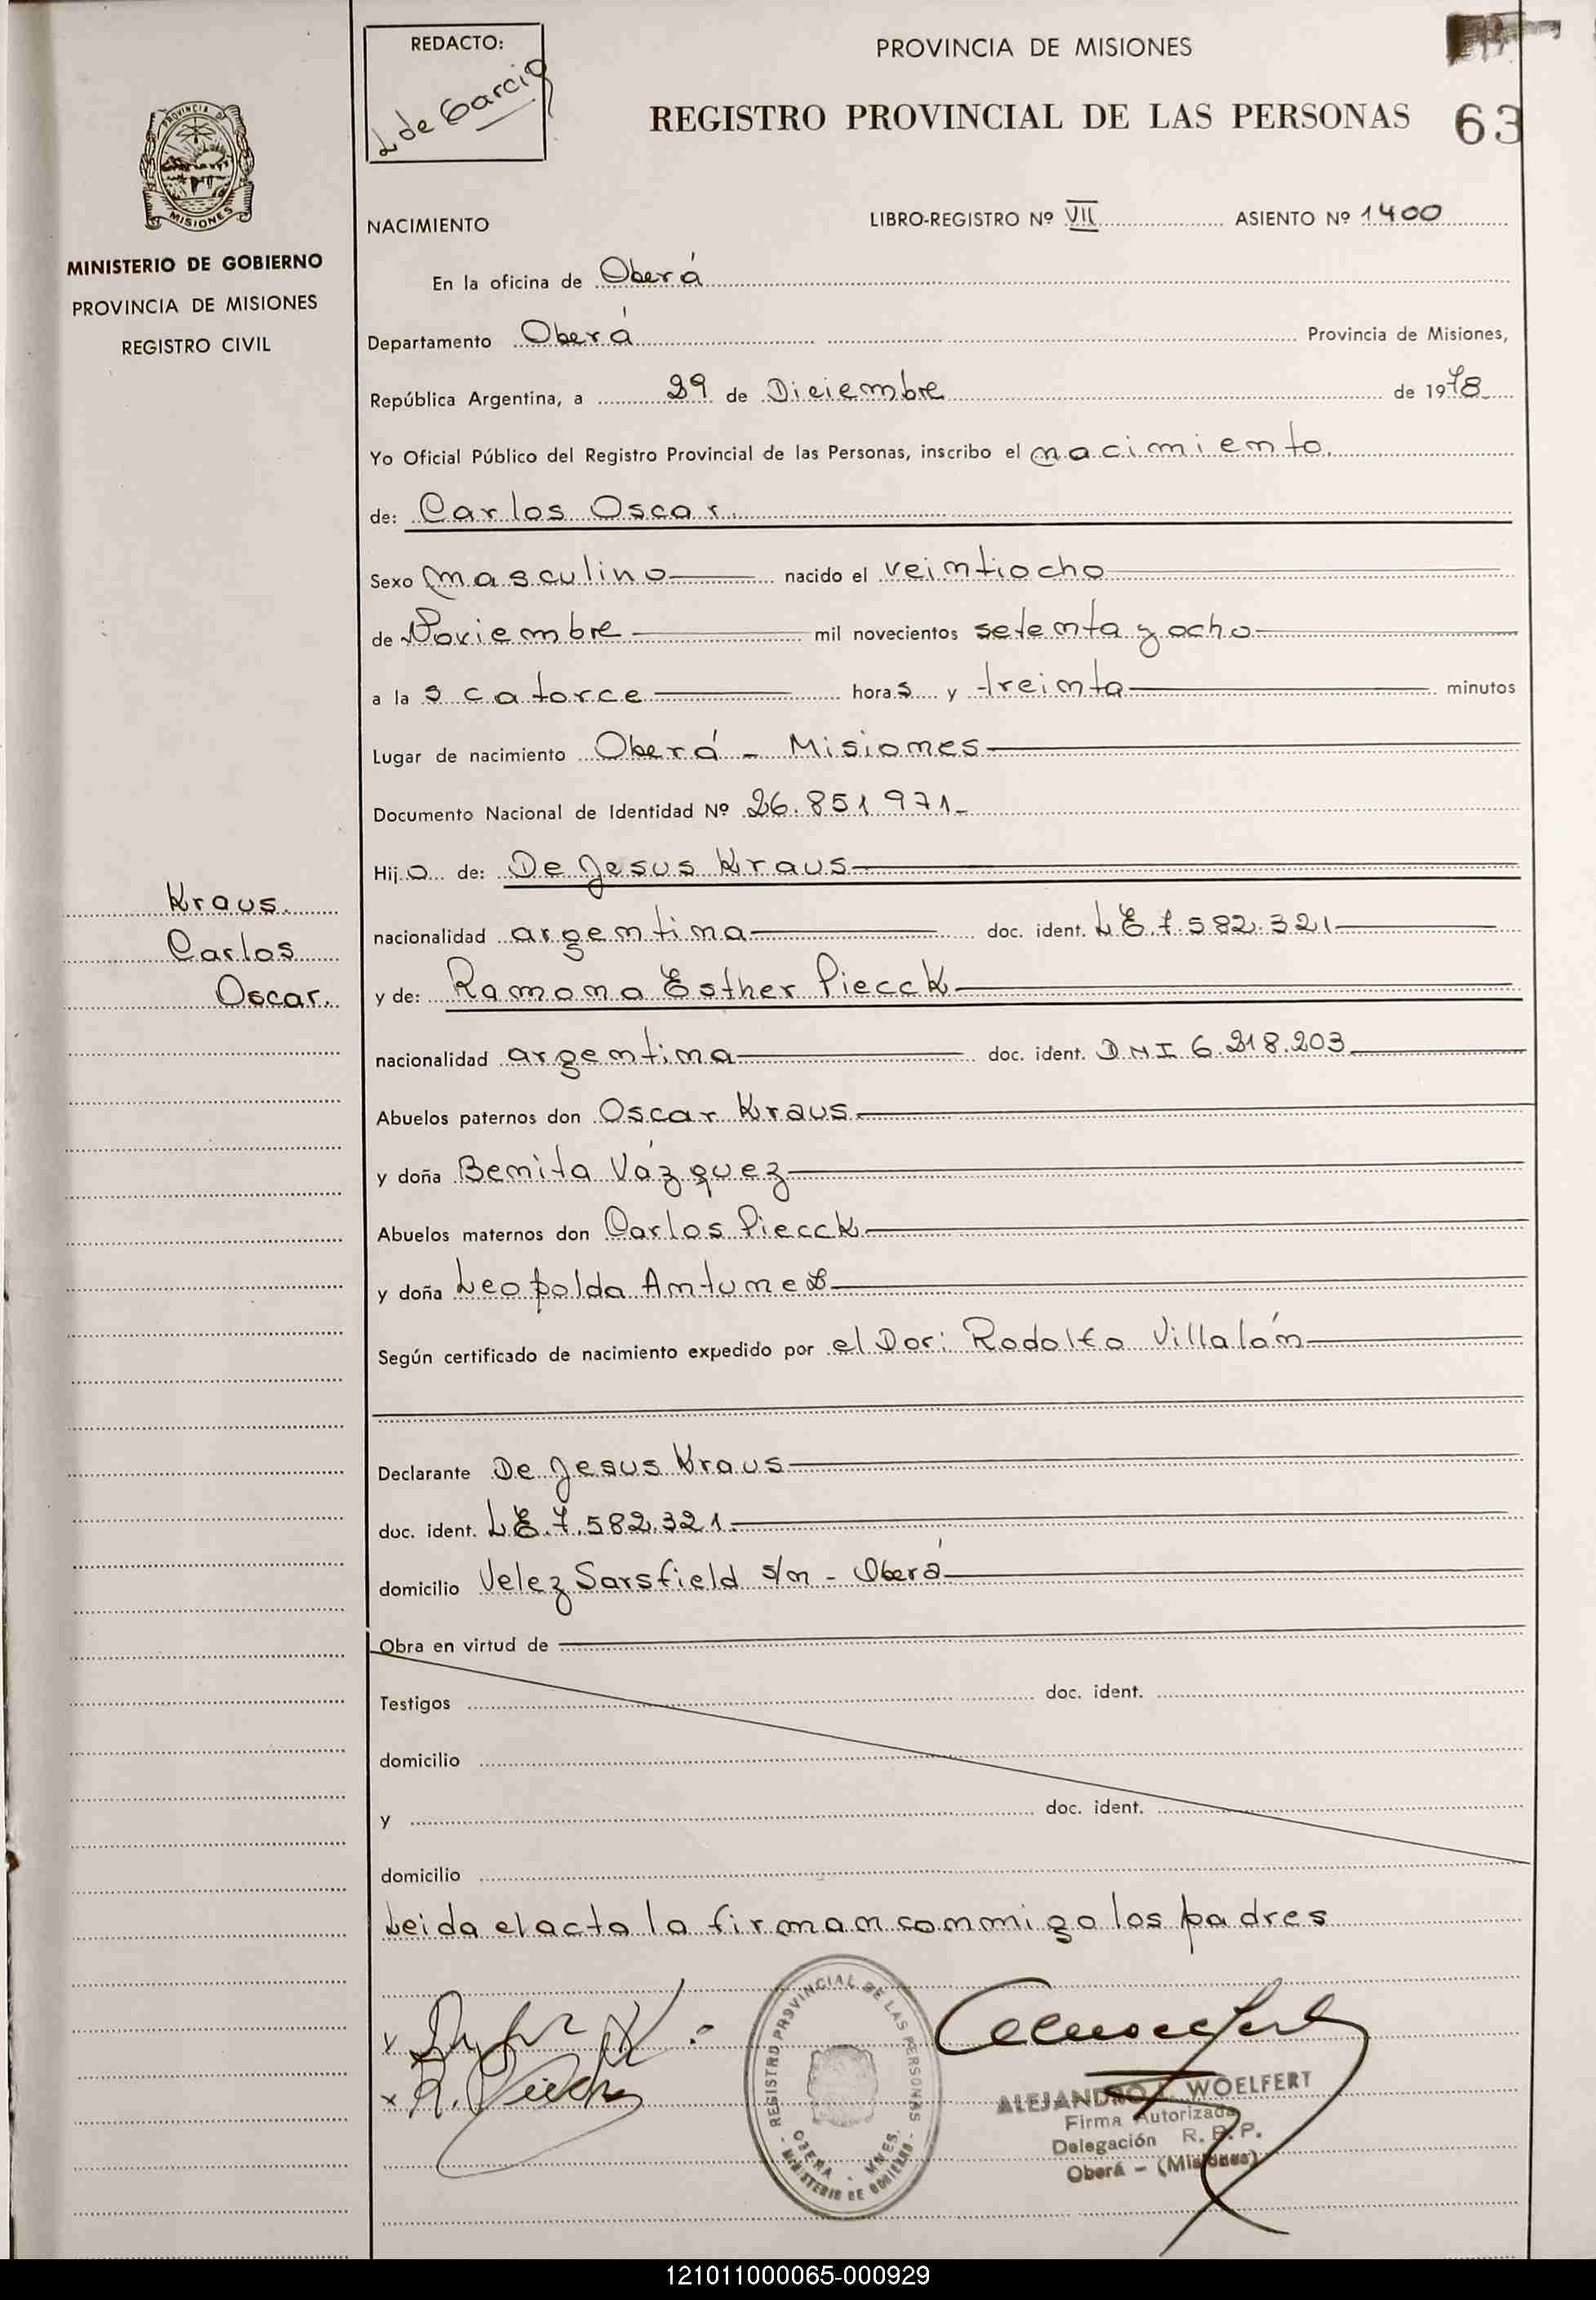 REDACTO:
L de Garcia
PROVINCIA DE MISIONES
REGISTRO PROVINCIAL DE LAS PERSONAS 63
PROVINCIA DE
MISIONES
MINISTERIO DE GOBIERNO
PROVINCIA DE MISIONES
REGISTRO CIVIL
NACIMIENTO LIBRO-REGISTRO Nº VII ASIENTO Nº 1400
En la oficina de Oberá
Departamento Oberá Provincia de Misiones,
República Argentina, a 29 de Diciembre de 1978
Yo Oficial Público del Registro Provincial de las Personas, inscribo el nacimiento
de: Carlos Oscar
Sexo masculino nacido el veintiocho
de Noviembre mil novecientos setenta y ocho
a la s catorce horas y treinta minutos
Lugar de nacimiento Oberá - Misiones
Documento Nacional de Identidad Nº 26.851971-
Hijo de: De Jesus Kraus
nacionalidad argentina doc. ident. L E. 7.582.321
y de: Ramona Esther Piecck
nacionalidad argentina doc. ident. D N I 6.218.203
Abuelos paternos don Oscar Kraus
y doña Benita Vázquez
Abuelos maternos don Carlos Piecck
y doña Leopolda Antunez
Según certificado de nacimiento expedido por el Dor: Rodolfo Villalón
Kraus
Carlos
Oscar
Declarante De Jesus Kraus
doc. ident. L E. 7.582.321.
domicilio Velez Sarsfield s/n - Oberá
Obra en virtud de
Testigos doc. ident.
domicilio
y doc. ident.
domicilio
Leida el acta la firman conmigo los padres
REGISTRO PROVINCIAL DE LAS PERSONAS
OBERA - MNES.
- MINISTERIO DE GOBIERNO -
ALEJANDRO L. WOELFERT
Firma Autorizada
Delegación R. P. P.
Oberá - (Misiones)
121011000065-000929